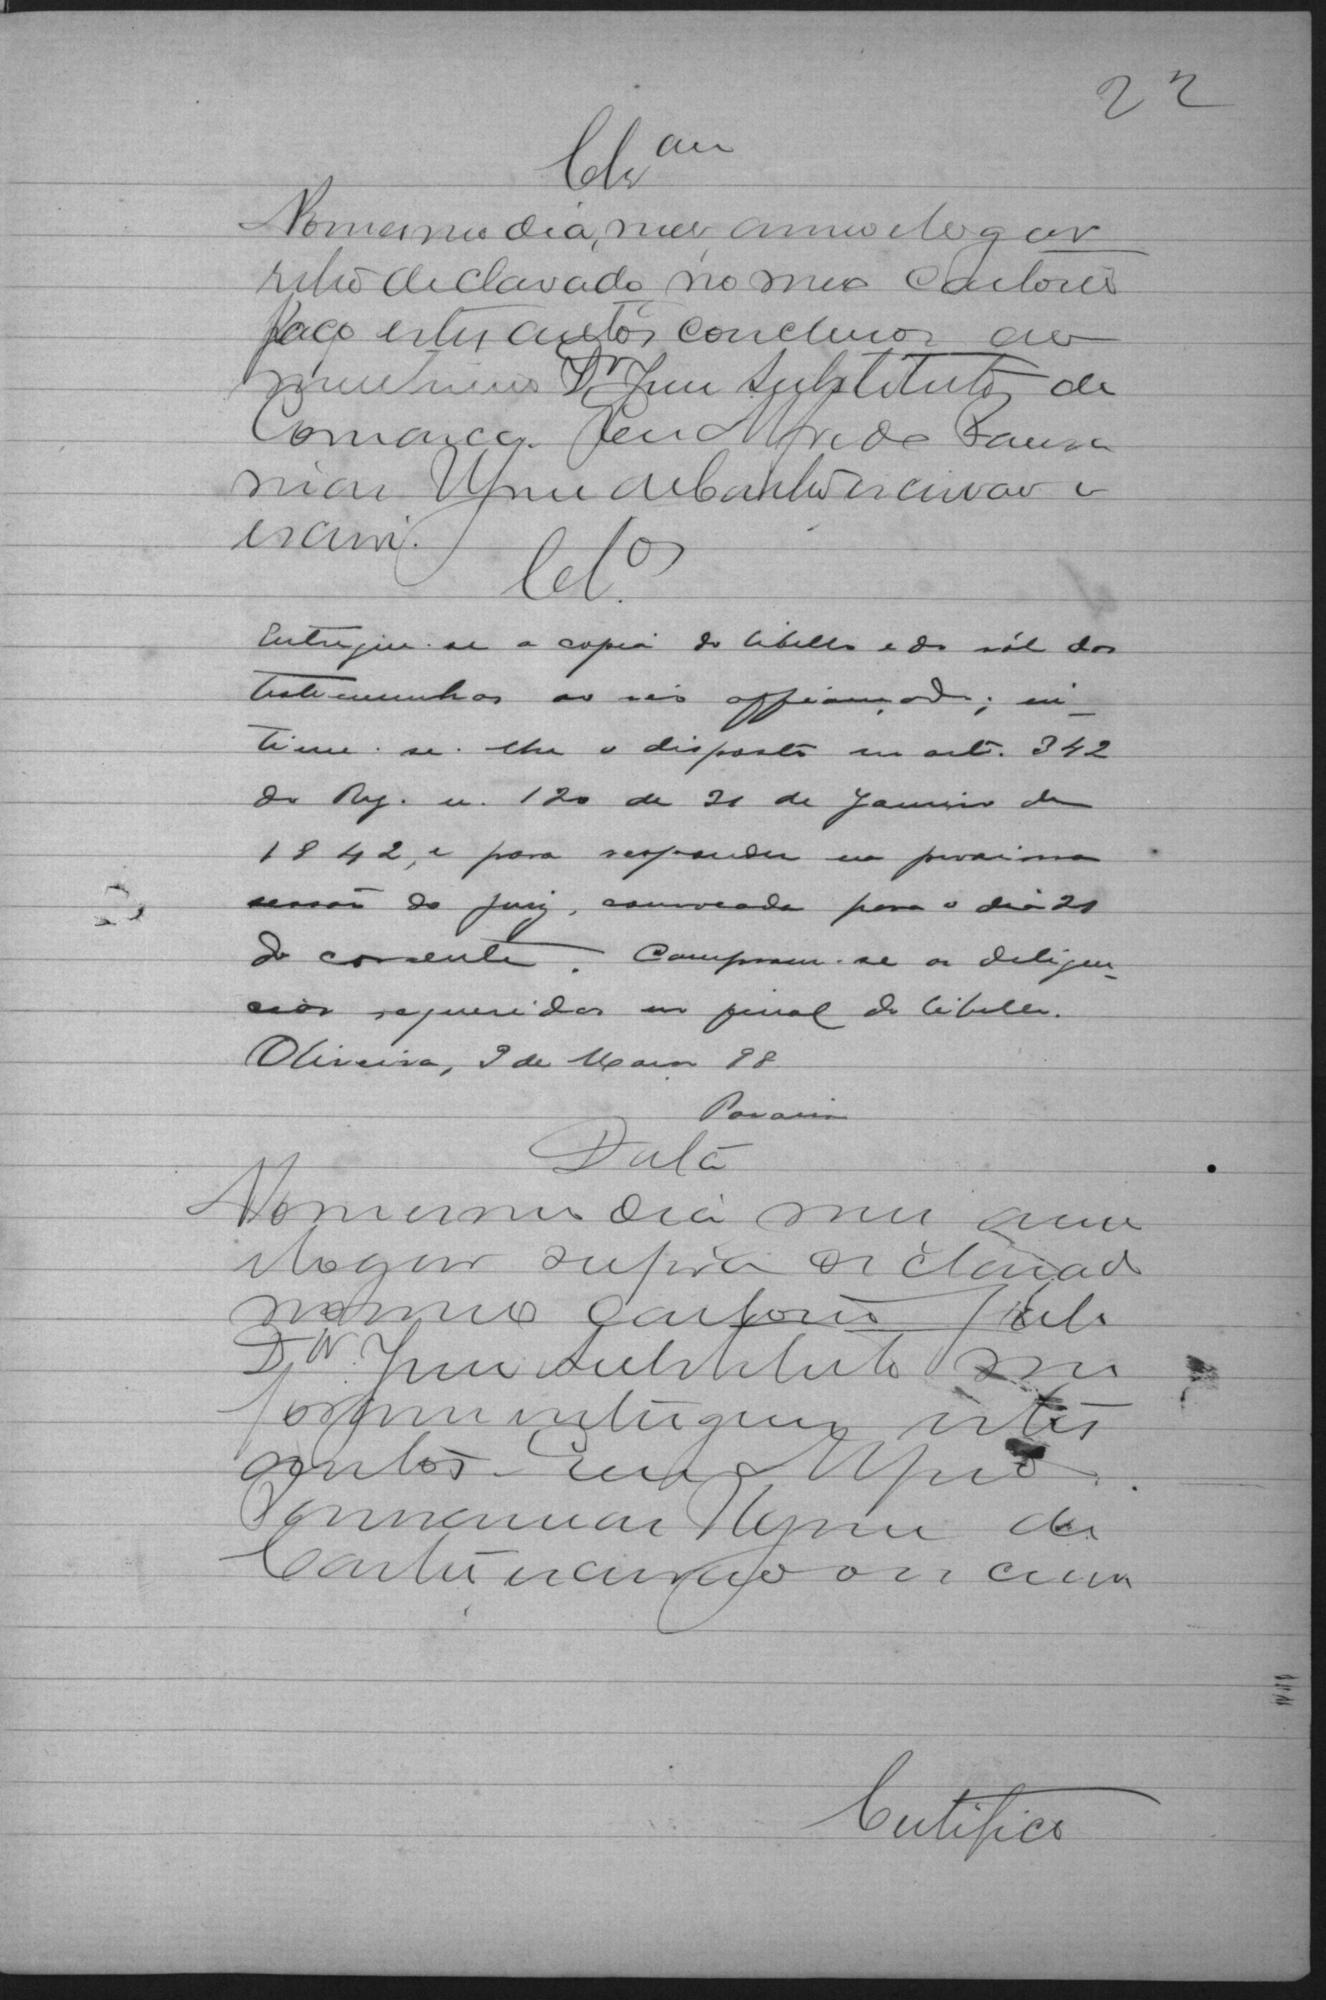 22
Clsam
No mesmo dia, mes, anno e logar
retro declarado, no meo cartorio
faço estes autos conclusos ao
meretissimo Dr Juiz Substituto da
Comarca. Eu Alfredo Pausa
nias de Castro escrivão o
escrevi.
Cl.os
Entregue-se a copia do libello e do ról das
testemunhas ao réo affiançado; in-
time-se-lhe o disposto no art. 342
do Reg. n. 120 de 31 de Janeiro de
1842, e para responder na proxima
sessão do jury, convocada para o dia 21
do corrente. Cumpram-se as diligen-
cias requeridas no final do libello.
Oliveira, 9 de Maio 98
Data
No mesmo dia mes anno
e logar supra declarado
no meo cartorio pelo
Dr. Juiz Substituto me
foram entregues estes
autos. Eu Alfredo
Pausanias de
Castro escrivão o escrevi
Certifico